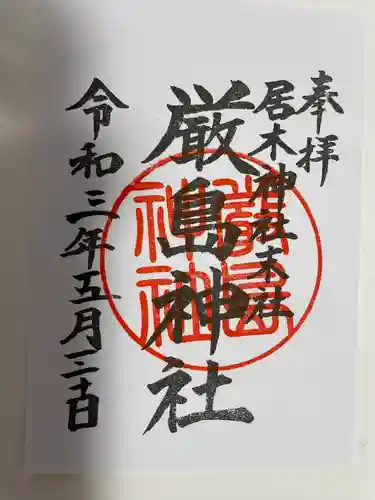 奉拝
居木神社末社
厳島神社
令和三年五月三十日
厳島神社